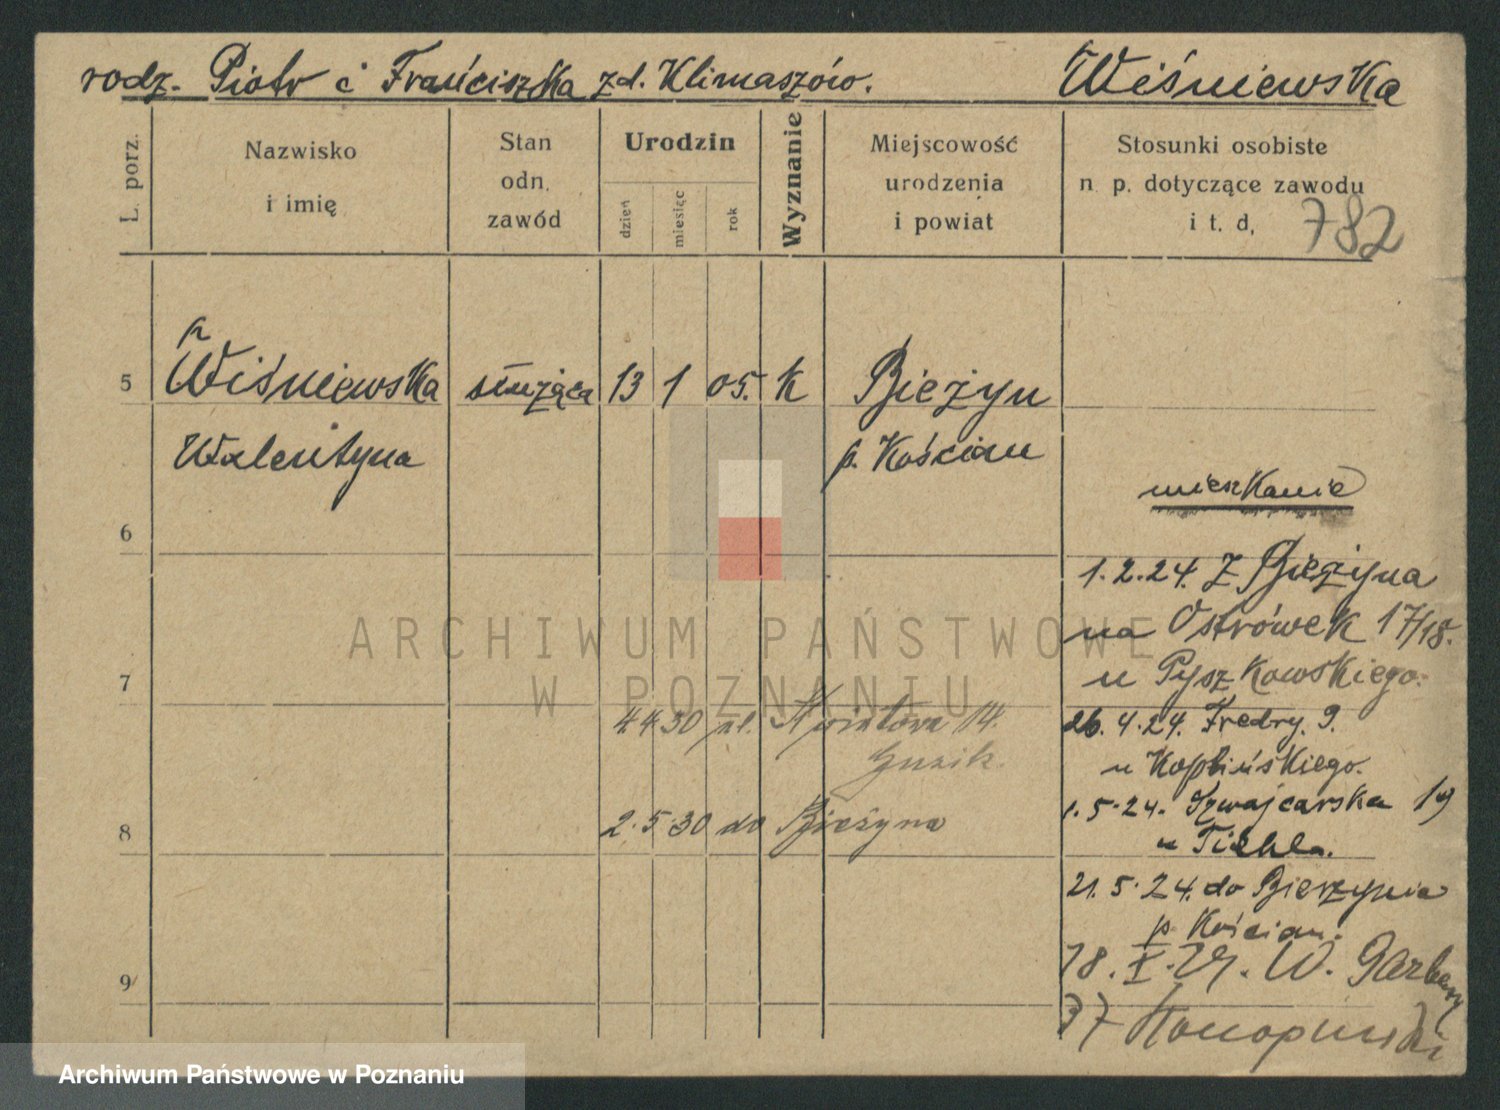 rodz. Piotr i Franciszka zd. Klimaszów. Wiśniewska
L. porz.
Nazwisko
i imię
Stan
odn.
zawód
Urodzin
dzień
miesiąc
rok
Wyznanie
Miejscowość
urodzenia
i powiat
Stosunki osobiste
n p. dotyczące zawodu
i t. d.
782
5 Wiśniewska służąca 13 1 05. K Bieżyn
Walentyna p. Kościan
mieszkanie
6
1.2.24. Z Bieżyna
na Ostrówek 17/18.
u Pyszkowskiego.
7
26.4.24. Fredry. 9.
u
1.5.24. Szwajcarska 19
u
4 4 30 pl. 14.
8 2.5.30 do Bieżyna
21.5.24. do Bierzynia
p. Kościan.
18. X. W. Garbary
37
9
ARCHIWUM PAŃSTWOWE
W POZNANIU
Archiwum Państwowe w Poznaniu